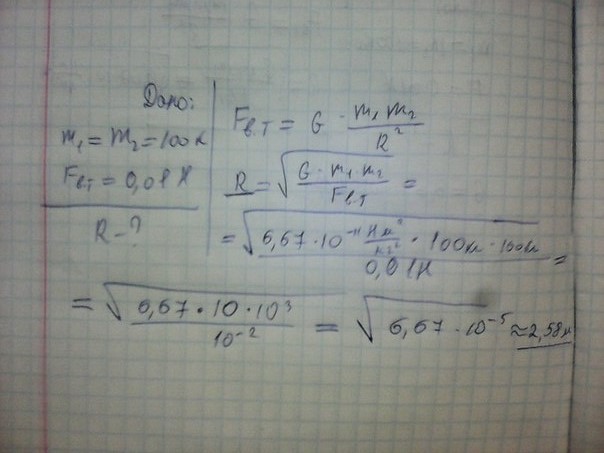 Дано:
m₁ = m₂ = 100к
Fв.т = 0,01 Н
R - ?
Fв.т = G · m₁ m₂ / R²
R = √(G · m₁ · m₂ / Fв.т) =
= √(6,67 · 10⁻¹¹ Н м²/кг² · 100кг · 100кг / 0,01Н) =
= √(6,67 · 10 · 10³ / 10⁻²) = √(6,67 · 10⁻⁵) ≈ 2,58м